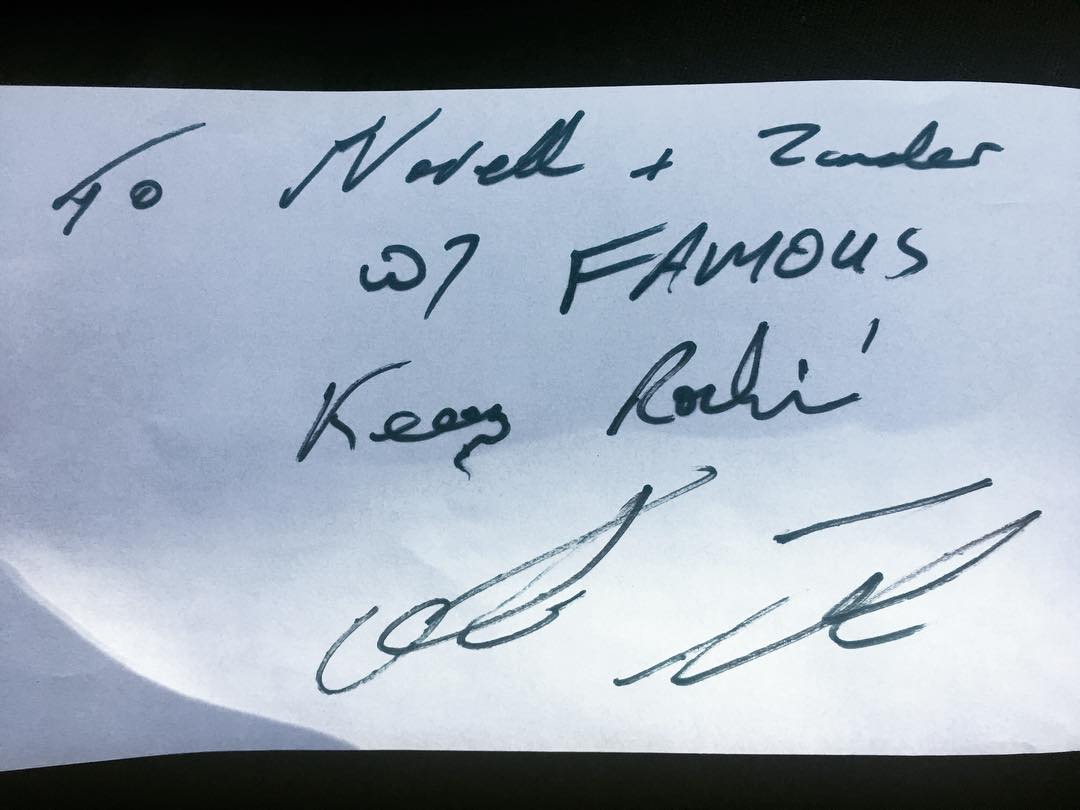 To Novell + Zander
w/ FAMOUS
Keep Rockin'